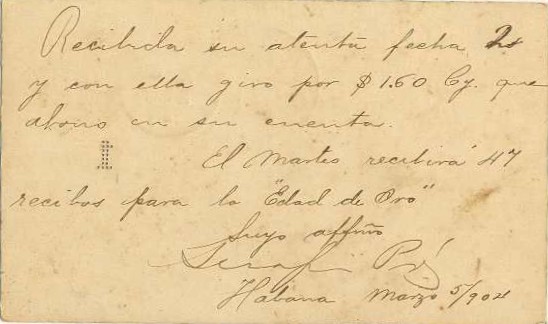 Recibida su atenta fecha 2
y con ella giro por $1.60 Cy. que
abono en su cuenta.
1
El Martes recibirá 47
recibos para la "Edad de Oro"
Suyo affmo
Habana Marzo 5/904